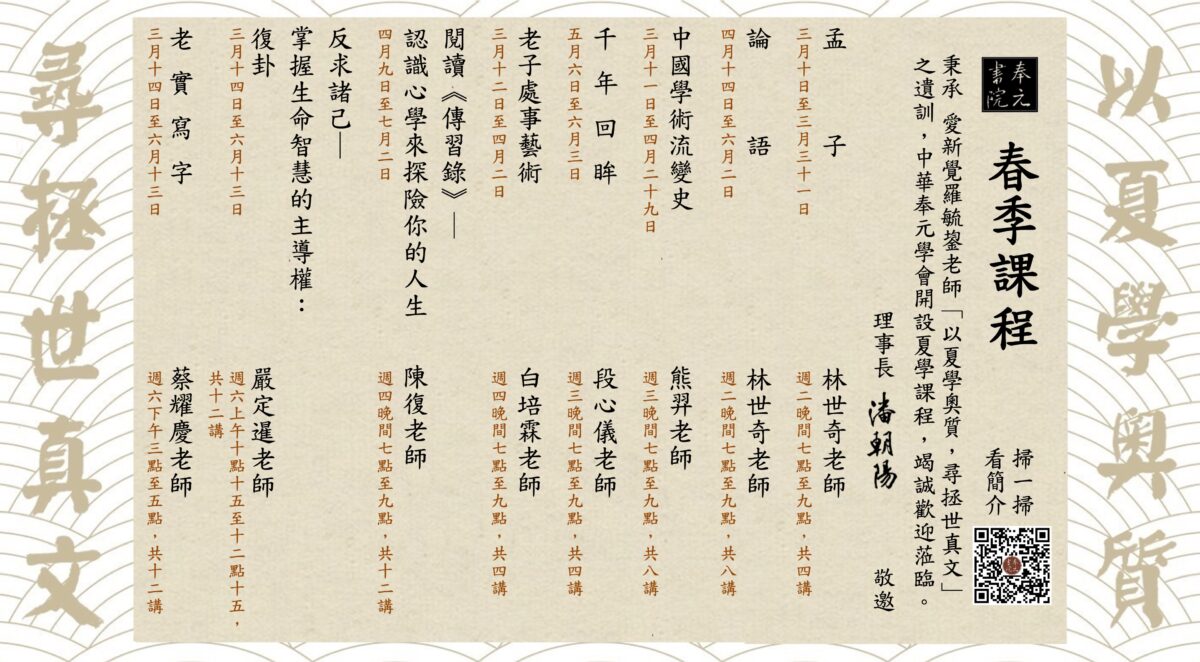 以夏學奧質
奉元
書院
春季課程
掃一掃
看簡介
秉承 愛新覺羅毓鋆老師「以夏學奧質，尋拯世真文」
之遺訓，中華奉元學會開設夏學課程，竭誠歡迎蒞臨。
理事長 潘朝陽 敬邀
孟子 林世奇老師
三月十日至三月三十一日 週二晚間七點至九點，共四講
論語 林世奇老師
四月十四日至六月二日 週二晚間七點至九點，共八講
中國學術流變史 熊羿老師
三月十一日至四月二十九日 週三晚間七點至九點，共八講
千年回眸 段心儀老師
五月六日至六月三日 週三晚間七點至九點，共四講
老子處事藝術 白培霖老師
三月十二日至四月二日 週四晚間七點至九點，共四講
閱讀《傳習錄》—
認識心學來探險你的人生 陳復老師
四月九日至七月二日 週四晚間七點至九點，共十二講
反求諸己—
掌握生命智慧的主導權：
復卦 嚴定暹老師
三月十四日至六月十三日 週六上午十點十五至十二點十五，
共十二講
老實寫字 蔡耀慶老師
三月十四日至六月十三日 週六下午三點至五點，共十二講
尋拯世真文